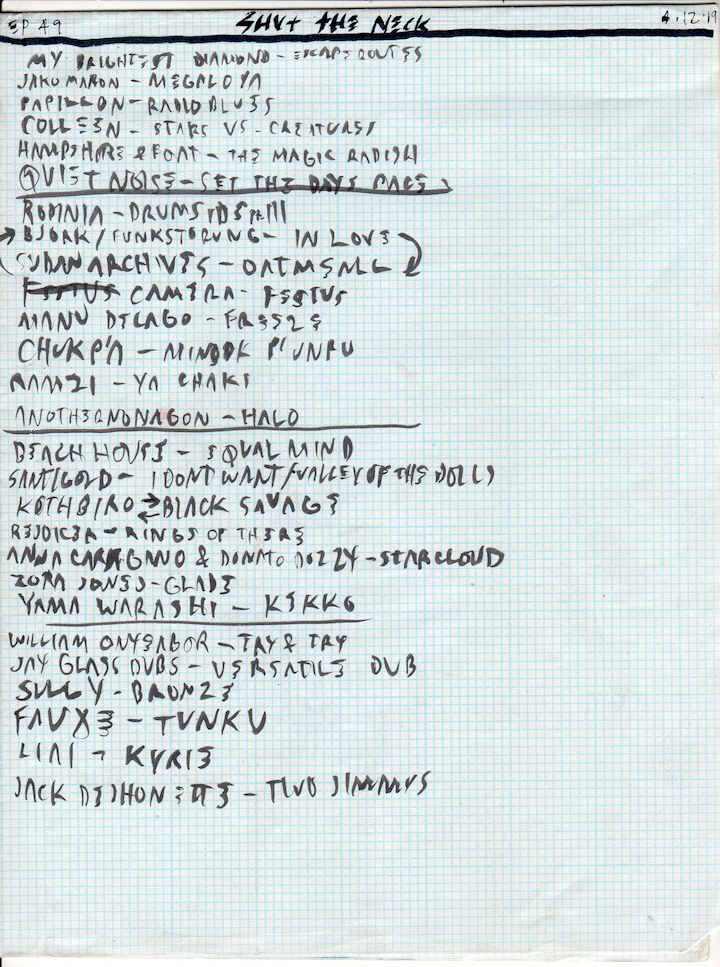 EP 49 SHUT THE NECK 4.12.19
MY BRIGHTEST DIAMOND - ESCAPE ROUTES
JAKO MARON - MEGALOYA
PAPILLON - RADIO BLUES
COLLEEN - STARS VS. CREATURES
HAMPSHIRE & FOAT - THE MAGIC RADISH
QUIET NOISE - SET THE DAYS PACE
ROMNIA - DRUMS
→ BJORK / FUNKSTORUNG - IN LOVE
SUDAN ARCHIVES - OATMEAL
FESTUS CAMERA - FESTUS
MANU DELAGO - FREEZE
CHUKPA - P'UNFU
RAMZI - YA CHAKI
ANOTHERNONAGON - HALO
BEACH HOUSE - EQUAL MIND
SANTIGOLD - I DONT WANT / VALLEY OF THE DOLLS
KOTHBIRO ⇄ BLACK SAVAGE
REJOICER - RINGS OF THERE
ANNA CARAGNANO & DONATO DOZZY - STARCLOUD
ZORA JONES - GLADE
YAMA WARASHI - KEKKO
WILLIAM ONYEABOR - TRY & TRY
JAY GLASS DUBS - VERSATILE DUB
SULLY - BRONZE
FAUXE - TUNKU
LIAI - KYRIE
JACK DEJHONETTE - TWO JIMMYS